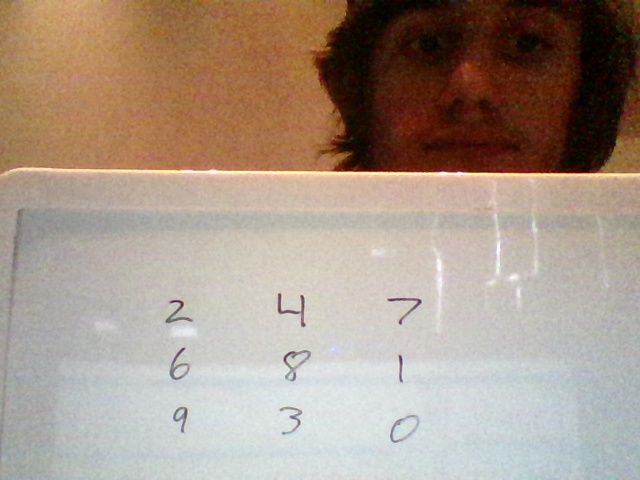 2 4 7
6 8 1
9 3 0